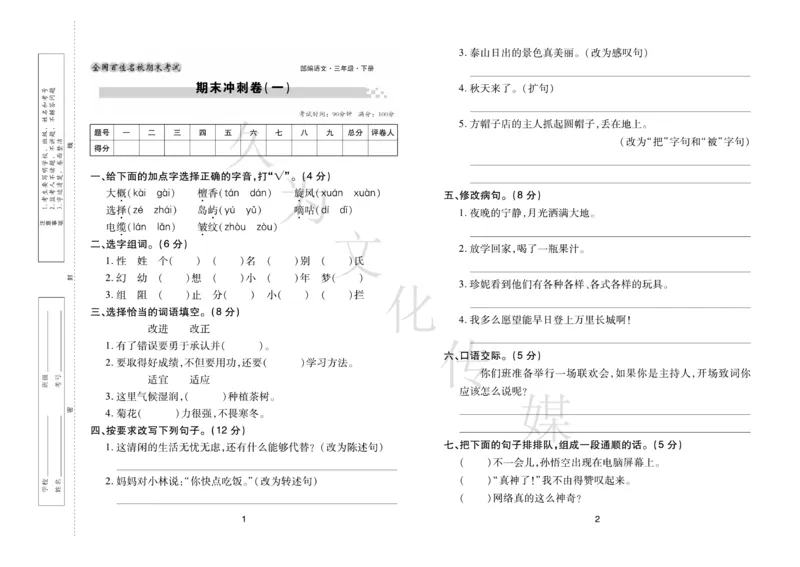 全国百佳名校期末考试
部编语文·三年级·下册
期末冲刺卷(一)
考试时间：90分钟 满分：100分
题号 一 二 三 四 五 六 七 八 九 总分 评卷人
得分
一、给下面的加点字选择正确的字音,打“√”。(4分)
大概(kài gài) 檀香(tán dán) 旋风(xuán xuàn)
选择(zé zhái) 岛屿(yú yǔ) 嘀咕(dí dī)
电缆(lán lǎn) 皱纹(zhòu zòu)
二、选字组词。(6分)
1. 性 姓 个( ) ( )名 ( )别 ( )氏
2. 幻 幼 ( )想 ( )小 ( )年 梦( )
3. 组 阻 ( )止 分( ) 小( ) ( )拦
三、选择恰当的词语填空。(8分)
改进 改正
1. 有了错误要勇于承认并( )。
2. 要取得好成绩,不但要用功,还要( )学习方法。
适宜 适应
3. 这里气候湿润,( )种植茶树。
4. 菊花( )力很强,不畏寒冬。
四、按要求改写下列句子。(12分)
1. 这清闲的生活无忧无虑,还有什么能够代替?(改为陈述句)
2. 妈妈对小林说:“你快点吃饭。”(改为转述句)
1
3. 泰山日出的景色真美丽。(改为感叹句)
4. 秋天来了。(扩句)
5. 方帽子店的主人抓起圆帽子,丢在地上。
(改为“把”字句和“被”字句)
五、修改病句。(8分)
1. 夜晚的宁静,月光洒满大地。
2. 放学回家,喝了一瓶果汁。
3. 珍妮看到他们有各种各样、各式各样的玩具。
4. 我多么愿望能早日登上万里长城啊!
六、口语交际。(5分)
你们班准备举行一场联欢会,如果你是主持人,开场致词你
应该怎么说呢?
七、把下面的句子排排队,组成一段通顺的话。(5分)
( )不一会儿,孙悟空出现在电脑屏幕上。
( )“真神了!”我不由得赞叹起来。
( )网络真的这么神奇?
2
注意事项
1. 考生要写明学校、班级、姓名和考号
2. 监考人不读题、不讲题、不解答问题
3. 字迹清楚、卷面整洁
学校 班级
姓名 考号
密 封 线
久为文化传媒